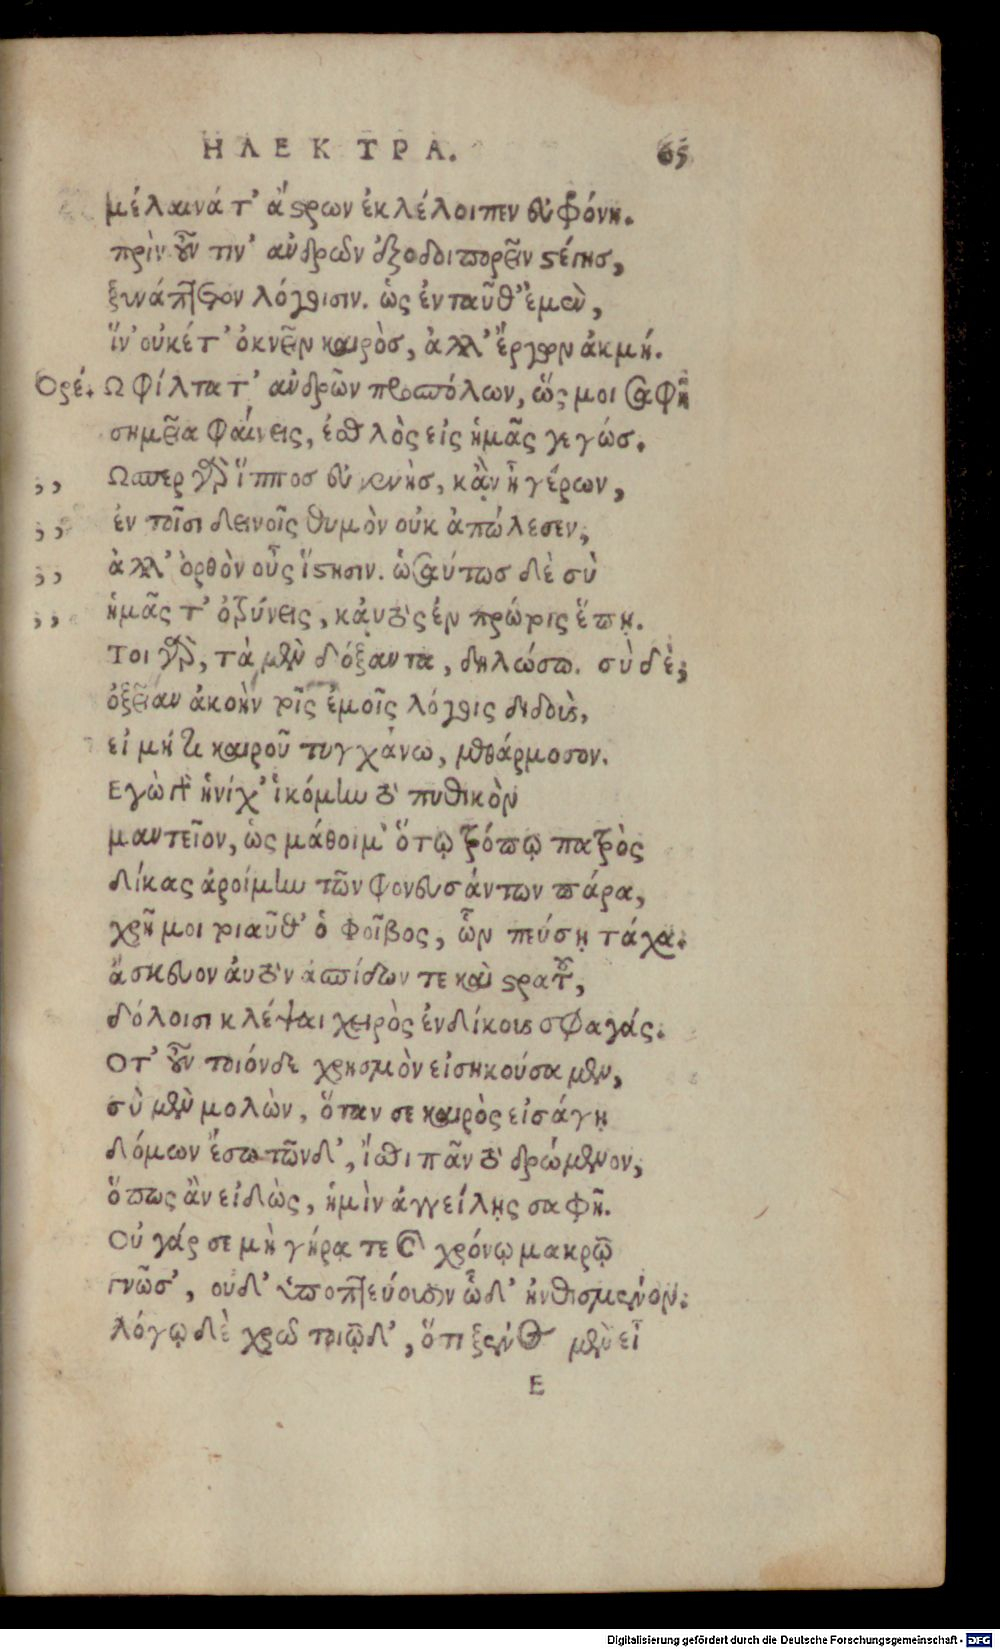 ΗΛΕΚΤΡΑ. 65
μέλαινά τ' ἄστρων ἐκλέλοιπεν εὐφρόνη.
πρὶν οὖν τιν' ἀνδρῶν ἐξοδοιπορεῖν στέγης,
ξυνάπτετον λόγοισιν. ὡς ἐνταῦθ' ἐμὲν,
ἵν' οὐκέτ' ὀκνεῖν καιρὸς, ἀλλ' ἔργων ἀκμή.
Ορέ. Ω φίλτατ' ἀνδρῶν προσπόλων, ὥς μοι σαφῆ
σημεῖα φαίνεις, ἐσθλὸς εἰς ἡμᾶς γεγώς.
,, Ωσπερ γὰρ ἵππος εὐγενὴς, κἂν ᾖ γέρων,
,, ἐν τοῖσι δεινοῖς θυμὸν οὐκ ἀπώλεσεν,
,, ἀλλ' ὀρθὸν οὖς ἵστησιν. ὡσαύτως δὲ σὺ
,, ἡμᾶς τ' ὀξύνεις, καὐτὸς ἐν πρώτοις ἕπῃ.
Τοιγὰρ, τὰ μὲν δόξαντα, δηλώσω. σὺ δὲ,
ὀξεῖαν ἀκοὴν τοῖς ἐμοῖς λόγοις διδοὺς,
εἰ μή τι καιροῦ τυγχάνω, μεθάρμοσον.
Εγὼ γὰρ ἡνίχ' ἱκόμην τὸ πυθικὸν
μαντεῖον, ὡς μάθοιμ' ὅτῳ τρόπῳ πατρὸς
δίκας ἀροίμην τῶν φονευσάντων πάρα,
χρῇ μοι τοιαῦθ' ὁ Φοῖβος, ὧν πεύσῃ τάχα.
ἄσκευον αὐτὸν ἀσπίδων τε καὶ στρατοῦ,
δόλοισι κλέψαι χειρὸς ἐνδίκους σφαγάς.
Οτ' οὖν τοιόνδε χρησμὸν εἰσηκούσαμεν,
σὺ μὲν μολὼν, ὅταν σε καιρὸς εἰσάγῃ
δόμων ἔσω τῶνδ', ἴσθι πᾶν τὸ δρώμενον,
ὅπως ἂν εἰδὼς, ἡμὶν ἀγγείλῃς σαφῆ.
Οὐ γάρ σε μὴ γήρᾳ τε καὶ χρόνῳ μακρῷ
γνῶσ', οὐδ' ὑποπτεύσουσιν ὧδ' ἠνθισμένον.
λόγῳ δὲ χρῶ τοιῷδ', ὅτι ξένος μὲν εἶ
E
Digitalisierung gefördert durch die Deutsche Forschungsgemeinschaft - DFG